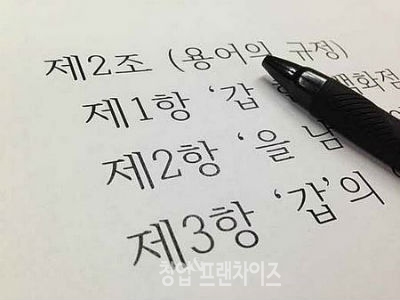 제2조 (용어의 규정)
제1항 '갑 백화점
제2항 '을 남
제3항 '갑'의
창업프랜차이즈